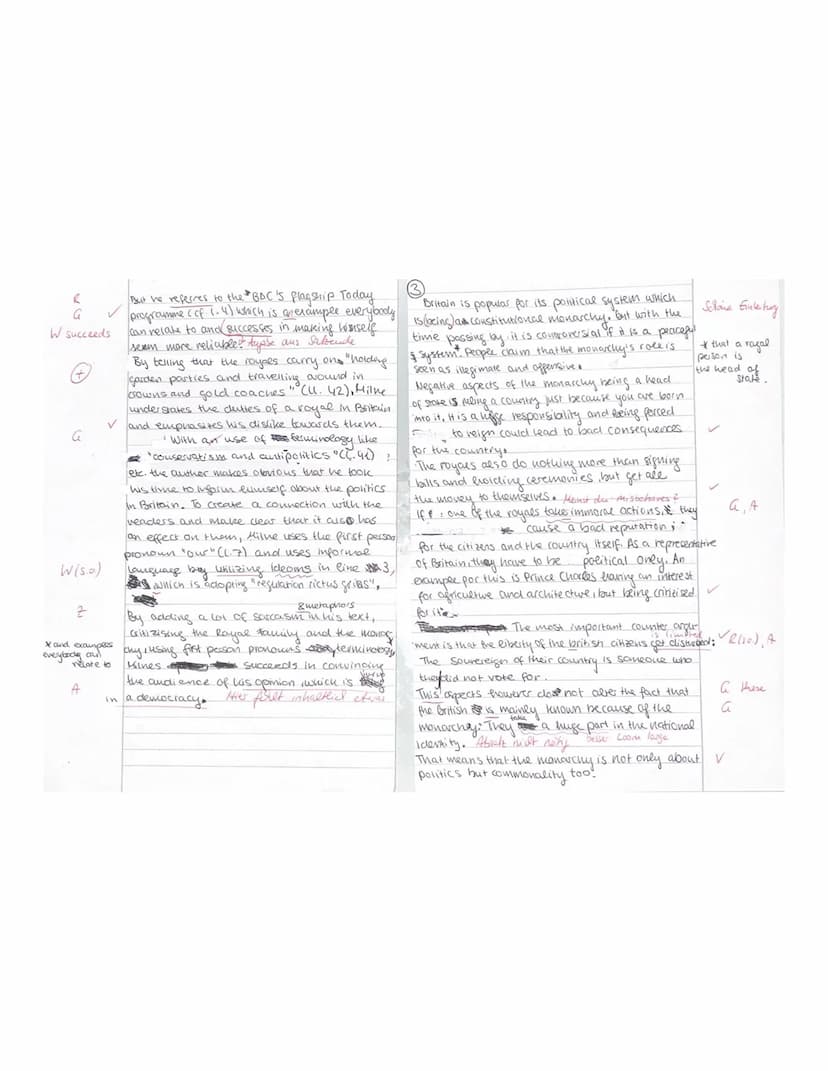 R
G
W succeeds
But he referres to the "BBC's flagship Today
programme (cf. l. 4) which is an example everybody
can relate to and successes in making himself
seem more reliable.
By telling that the royals carry on "holding
garden parties and travelling around in
crowns and gold coaches" (ll. 42), Milne
understates the duties of a royal in Britain
and emphasizes his dislike towards them.
G
With an use of terminology like
"conservatism and antipolitics" (l. 41)
etc. the author makes obvious that he took
his time to inform himself about the politics
in Britain. To create a connection with the
readers and make clear that it also has
an effect on them, Milne uses the first person
pronoun "our" (l. 7) and uses informal
W (s.o)
language by utilizing ideoms in line 3,
which is adopting "regulation rictus grins",
Z
& metaphors
By adding a lot of sarcasm in his text,
critizising the Royal family and the monar
chy, using first person pronouns, terminology,
* and examples
everybody can
relate to
Milnes succeeds in convincing
the audience of his opinion which is living
A
in a democracy. Hier fehlt inhaltlich etwas
3
Britain is popular for its political system which
Schöne Einleitung
is (being) a constitutional monarchy. But with the
time passing by, it is controversial if it is a peaceful
system*. People claim that the monarchy's role is
* that a royal
person is
the head of
state.
seen as illegitimate and offensive.
Negative aspects of the monarchy being a head
of state is ruling a country just because you are born
into it. It is a huge responsibility and being forced
to reign could lead to bad consequences
for the country.
The royals also do nothing more than signing
bills and holding ceremonies, but get all
the money to themselves. Meinst du misbehaves?
If one of the royals takes immoral actions, they
G, A
cause a bad reputation
for the citizens and the country itself. As a representative
of Britain, they have to be political only. An
example for this is Prince Charles having an interest
for agriculture and architecture, but being critized
for it.
The most important counter argu-
ment is that the liberty of the british citizens get
is limited
R (s.o), A
The souvereign of their country is someone who
they did not vote for.
This aspects however does not alter the fact that
G these
the British is mainly known because of the
G
monarchy. They take a huge part in the national
identity. Absatz nicht nötig
besser loom large
That means that the monarchy is not only about
politics but commonality too.